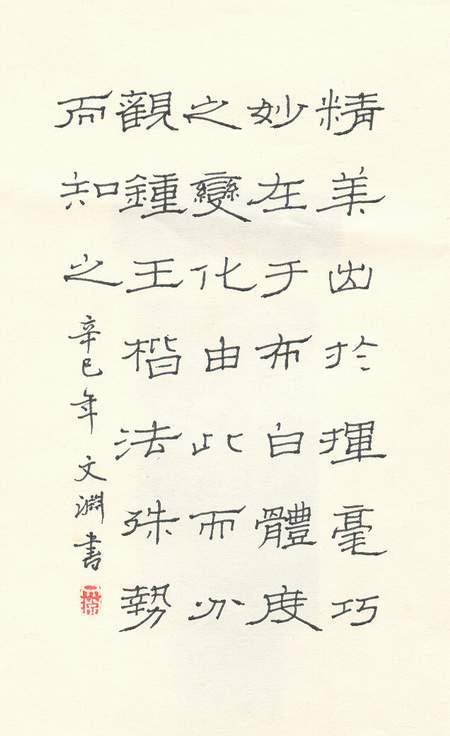 精美出於揮毫巧
妙在于布白體度
之變化由此而分
觀鍾王楷法殊勢
而知之 辛巳年文淵書